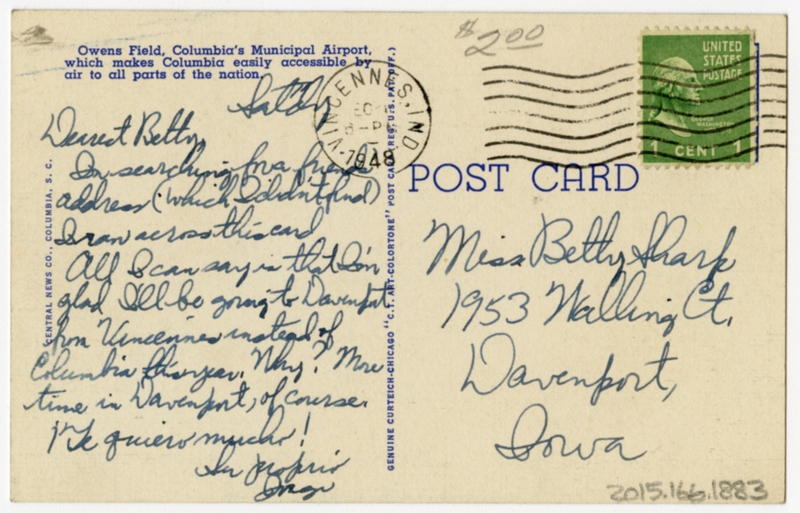 $2.00
Owens Field, Columbia's Municipal Airport,
which makes Columbia easily accessible by
air to all parts of the nation.
Satdy
Dearest Betty,
In searching for a friend
address (which I didn't find)
I ran across this card
All I can say is that I'm
glad I'll be going to Davenport
from Vincennes instead of
Columbia this year. Why? More
time in Davenport, of course.
¡Te quiero mucho!
Su propio
CENTRAL NEWS CO., COLUMBIA, S. C.
GENUINE CURTEICH-CHICAGO "C.T. ART-COLORTONE" POST CARD (REG. U.S. PAT. OFF.)
VINCENNES, IND.
1948
UNITED
STATES
POSTAGE
GEORGE
WASHINGTON
1 CENT 1
POST CARD
Miss Betty Sharp
1953 Walling Ct.
Davenport,
Iowa
2015.166.1883